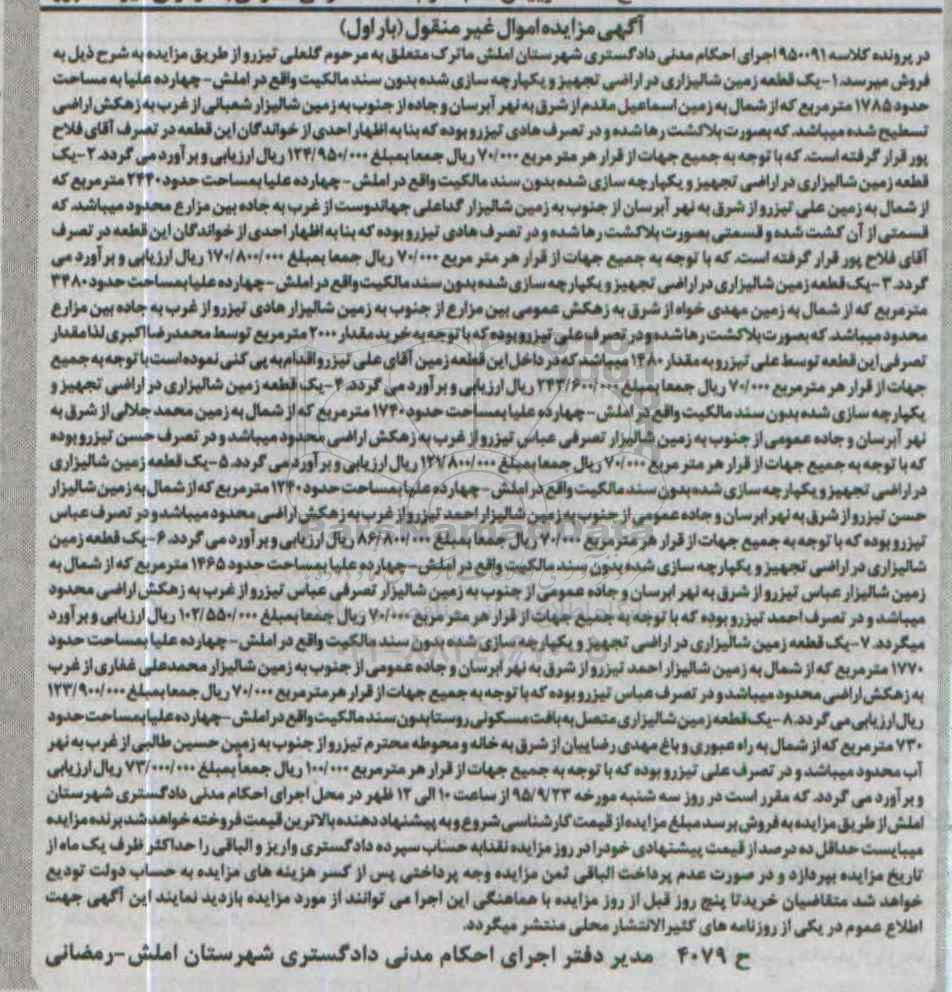 آگهی مزایده اموال غیر منقول (بار اول)
در پرونده کلاسه ۹۵۰۰۹۱ اجرای احکام مدنی دادگستری شهرستان املش ماترک متعلق به مرحوم گلعلی تیزرو از طریق مزایده به شرح ذیل به
فروش میرسد. ۱- یک قطعه زمین شالیزاری در اراضی تجهیز و یکپارچه سازی شده بدون سند مالکیت واقع در املش- چهارده علیا به مساحت
حدود ۱۷۸۵ متر مربع که از شمال به زمین اسماعیل مقدم از شرق به نهر آبرسان و جاده از جنوب به زمین شالیزار شعبانی از غرب به زهکش اراضی
تسطیح شده میباشد. که بصورت بلاکشت رها شده و در تصرف هادی تیزرو بوده که بنا به اظهار احدی از خواندگان این قطعه در تصرف آقای فلاح
پور قرار گرفته است. که با توجه به جمیع جهات از قرار هر متر مربع ۷۰/۰۰۰ ریال جمعا بمبلغ ۱۲۴/۹۵۰/۰۰۰ ریال ارزیابی و برآورد می گردد. ۲- یک
قطعه زمین شالیزاری در اراضی تجهیز و یکپارچه سازی شده بدون سند مالکیت واقع در املش- چهارده علیا بمساحت حدود ۲۴۴۰ متر مربع که
از شمال به زمین علی تیزرو از شرق به نهر آبرسان از جنوب به زمین شالیزار گداعلی جهاندوست از غرب به جاده بین مزارع محدود میباشد. که
قسمتی از آن کشت شده و قسمتی بصورت بلاکشت رها شده و در تصرف هادی تیزرو بوده که بنا به اظهار احدی از خواندگان این قطعه در تصرف
آقای فلاح پور قرار گرفته است. که با توجه به جمیع جهات از قرار هر متر مربع ۷۰/۰۰۰ ریال جمعا بمبلغ ۱۷۰/۸۰۰/۰۰۰ ریال ارزیابی و برآورد می
گردد. ۳- یک قطعه زمین شالیزاری در اراضی تجهیز و یکپارچه سازی شده بدون سند مالکیت واقع در املش- چهارده علیا بمساحت حدود ۳۴۸۰
مترمربع که از شمال به زمین مهدی خواه از شرق به زهکش عمومی بین مزارع از جنوب به زمین شالیزار هادی تیزرو از غرب به جاده بین مزارع
محدود میباشد. که بصورت بلاکشت رها شده و در تصرف علی تیزرو بوده که با توجه به خرید مقدار ۲۰۰۰ مترمربع توسط محمدرضا اکبری لذا مقدار
تصرفی این قطعه توسط علی تیزرو به مقدار ۱۴۸۰ میباشد که در داخل این قطعه زمین آقای علی تیزرو اقدام به پی کنی نموده است با توجه به جمیع
جهات از قرار هر مترمربع ۷۰/۰۰۰ ریال جمعا بمبلغ ۲۴۳/۶۰۰/۰۰۰ ریال ارزیابی و برآورد می گردد. ۴- یک قطعه زمین شالیزاری در اراضی تجهیز و
یکپارچه سازی شده بدون سند مالکیت واقع در املش- چهارده علیا بمساحت حدود ۱۷۴۰ مترمربع که از شمال به زمین محمد جلالی از شرق به
نهر آبرسان و جاده عمومی از جنوب به زمین شالیزار تصرفی عباس تیزرو از غرب به زهکش اراضی محدود میباشد و در تصرف حسن تیزرو بوده
که با توجه به جمیع جهات از قرار هر متر مربع ۷۰/۰۰۰ ریال جمعا بمبلغ ۱۲۱/۸۰۰/۰۰۰ ریال ارزیابی و برآورد می گردد. ۵- یک قطعه زمین شالیزاری
در اراضی تجهیز و یکپارچه سازی شده بدون سند مالکیت واقع در املش- چهارده علیا بمساحت حدود ۱۲۴۰ مترمربع که از شمال به زمین شالیزار
حسن تیزرو از شرق به نهر ابرسان و جاده عمومی از جنوب به زمین شالیزار احمد تیزرو از غرب به زهکش اراضی محدود میباشد و در تصرف عباس
تیزرو بوده که با توجه به جمیع جهات از قرار هر مترمربع ۷۰/۰۰۰ ریال جمعا بمبلغ ۸۶/۸۰۰/۰۰۰ ریال ارزیابی و برآورد می گردد. ۶- یک قطعه زمین
شالیزاری در اراضی تجهیز و یکپارچه سازی شده بدون سند مالکیت واقع در املش- چهارده علیا بمساحت حدود ۱۴۶۵ مترمربع که از شمال به
زمین شالیزار عباس تیزرو از شرق به نهر ابرسان و جاده عمومی از جنوب به زمین شالیزار تصرفی عباس تیزرو از غرب به زهکش اراضی محدود
میباشد و در تصرف احمد تیزرو بوده که با توجه به جمیع جهات از قرار هر متر مربع ۷۰/۰۰۰ ریال جمعا بمبلغ ۱۰۲/۵۵۰/۰۰۰ ریال ارزیابی و برآورد
میگردد. ۷- یک قطعه زمین شالیزاری در اراضی تجهیز و یکپارچه سازی شده بدون سند مالکیت واقع در املش- چهارده علیا بمساحت حدود
۱۷۷۰ مترمربع که از شمال به زمین شالیزار احمد تیزرو از شرق به نهر ابرسان و جاده عمومی از جنوب به زمین شالیزار محمدعلی غفاری از غرب
به زهکش اراضی محدود میباشد و در تصرف عباس تیزرو بوده که با توجه به جمیع جهات از قرار هر مترمربع ۷۰/۰۰۰ ریال جمعا بمبلغ ۱۲۳/۹۰۰/۰۰۰
ریال ارزیابی می گردد. ۸- یک قطعه زمین شالیزاری متصل به بافت مسکونی روستا بدون سند مالکیت واقع در املش- چهارده علیا بمساحت حدود
۷۳۰ مترمربع که از شمال به راه عبوری و باغ مهدی رضاییان از شرق به خانه و محوطه محترم تیزرو از جنوب به زمین حسین طالبی از غرب به نهر
آب محدود میباشد و در تصرف علی تیزرو بوده که با توجه به جمیع جهات از قرار هر مترمربع ۱۰۰/۰۰۰ ریال جمعاً بمبلغ ۷۳/۰۰۰/۰۰۰ ریال ارزیابی
و برآورد می گردد. که مقرر است در روز سه شنبه مورخه ۹۵/۹/۲۳ از ساعت ۱۰ الی ۱۲ ظهر در محل اجرای احکام مدنی دادگستری شهرستان
املش از طریق مزایده به فروش برسد مبلغ مزایده از قیمت کارشناسی شروع و به پیشنهاد دهنده بالاترین قیمت فروخته خواهد شد برنده مزایده
میبایست حداقل ده درصد از قیمت پیشنهادی خود را در روز مزایده نقدا به حساب سپرده دادگستری واریز و الباقی را حداکثر ظرف یک ماه از
تاریخ مزایده بپردازد و در صورت عدم پرداخت الباقی ثمن مزایده وجه پرداختی پس از کسر هزینه های مزایده به حساب دولت تودیع
خواهد شد متقاضیان خرید تا پنج روز قبل از روز مزایده با هماهنگی این اجرا می توانند از مورد مزایده بازدید نمایند این آگهی جهت
اطلاع عموم در یکی از روزنامه های کثیرالانتشار محلی منتشر میگردد.
ح ۴۰۷۹ مدیر دفتر اجرای احکام مدنی دادگستری شهرستان املش- رمضانی